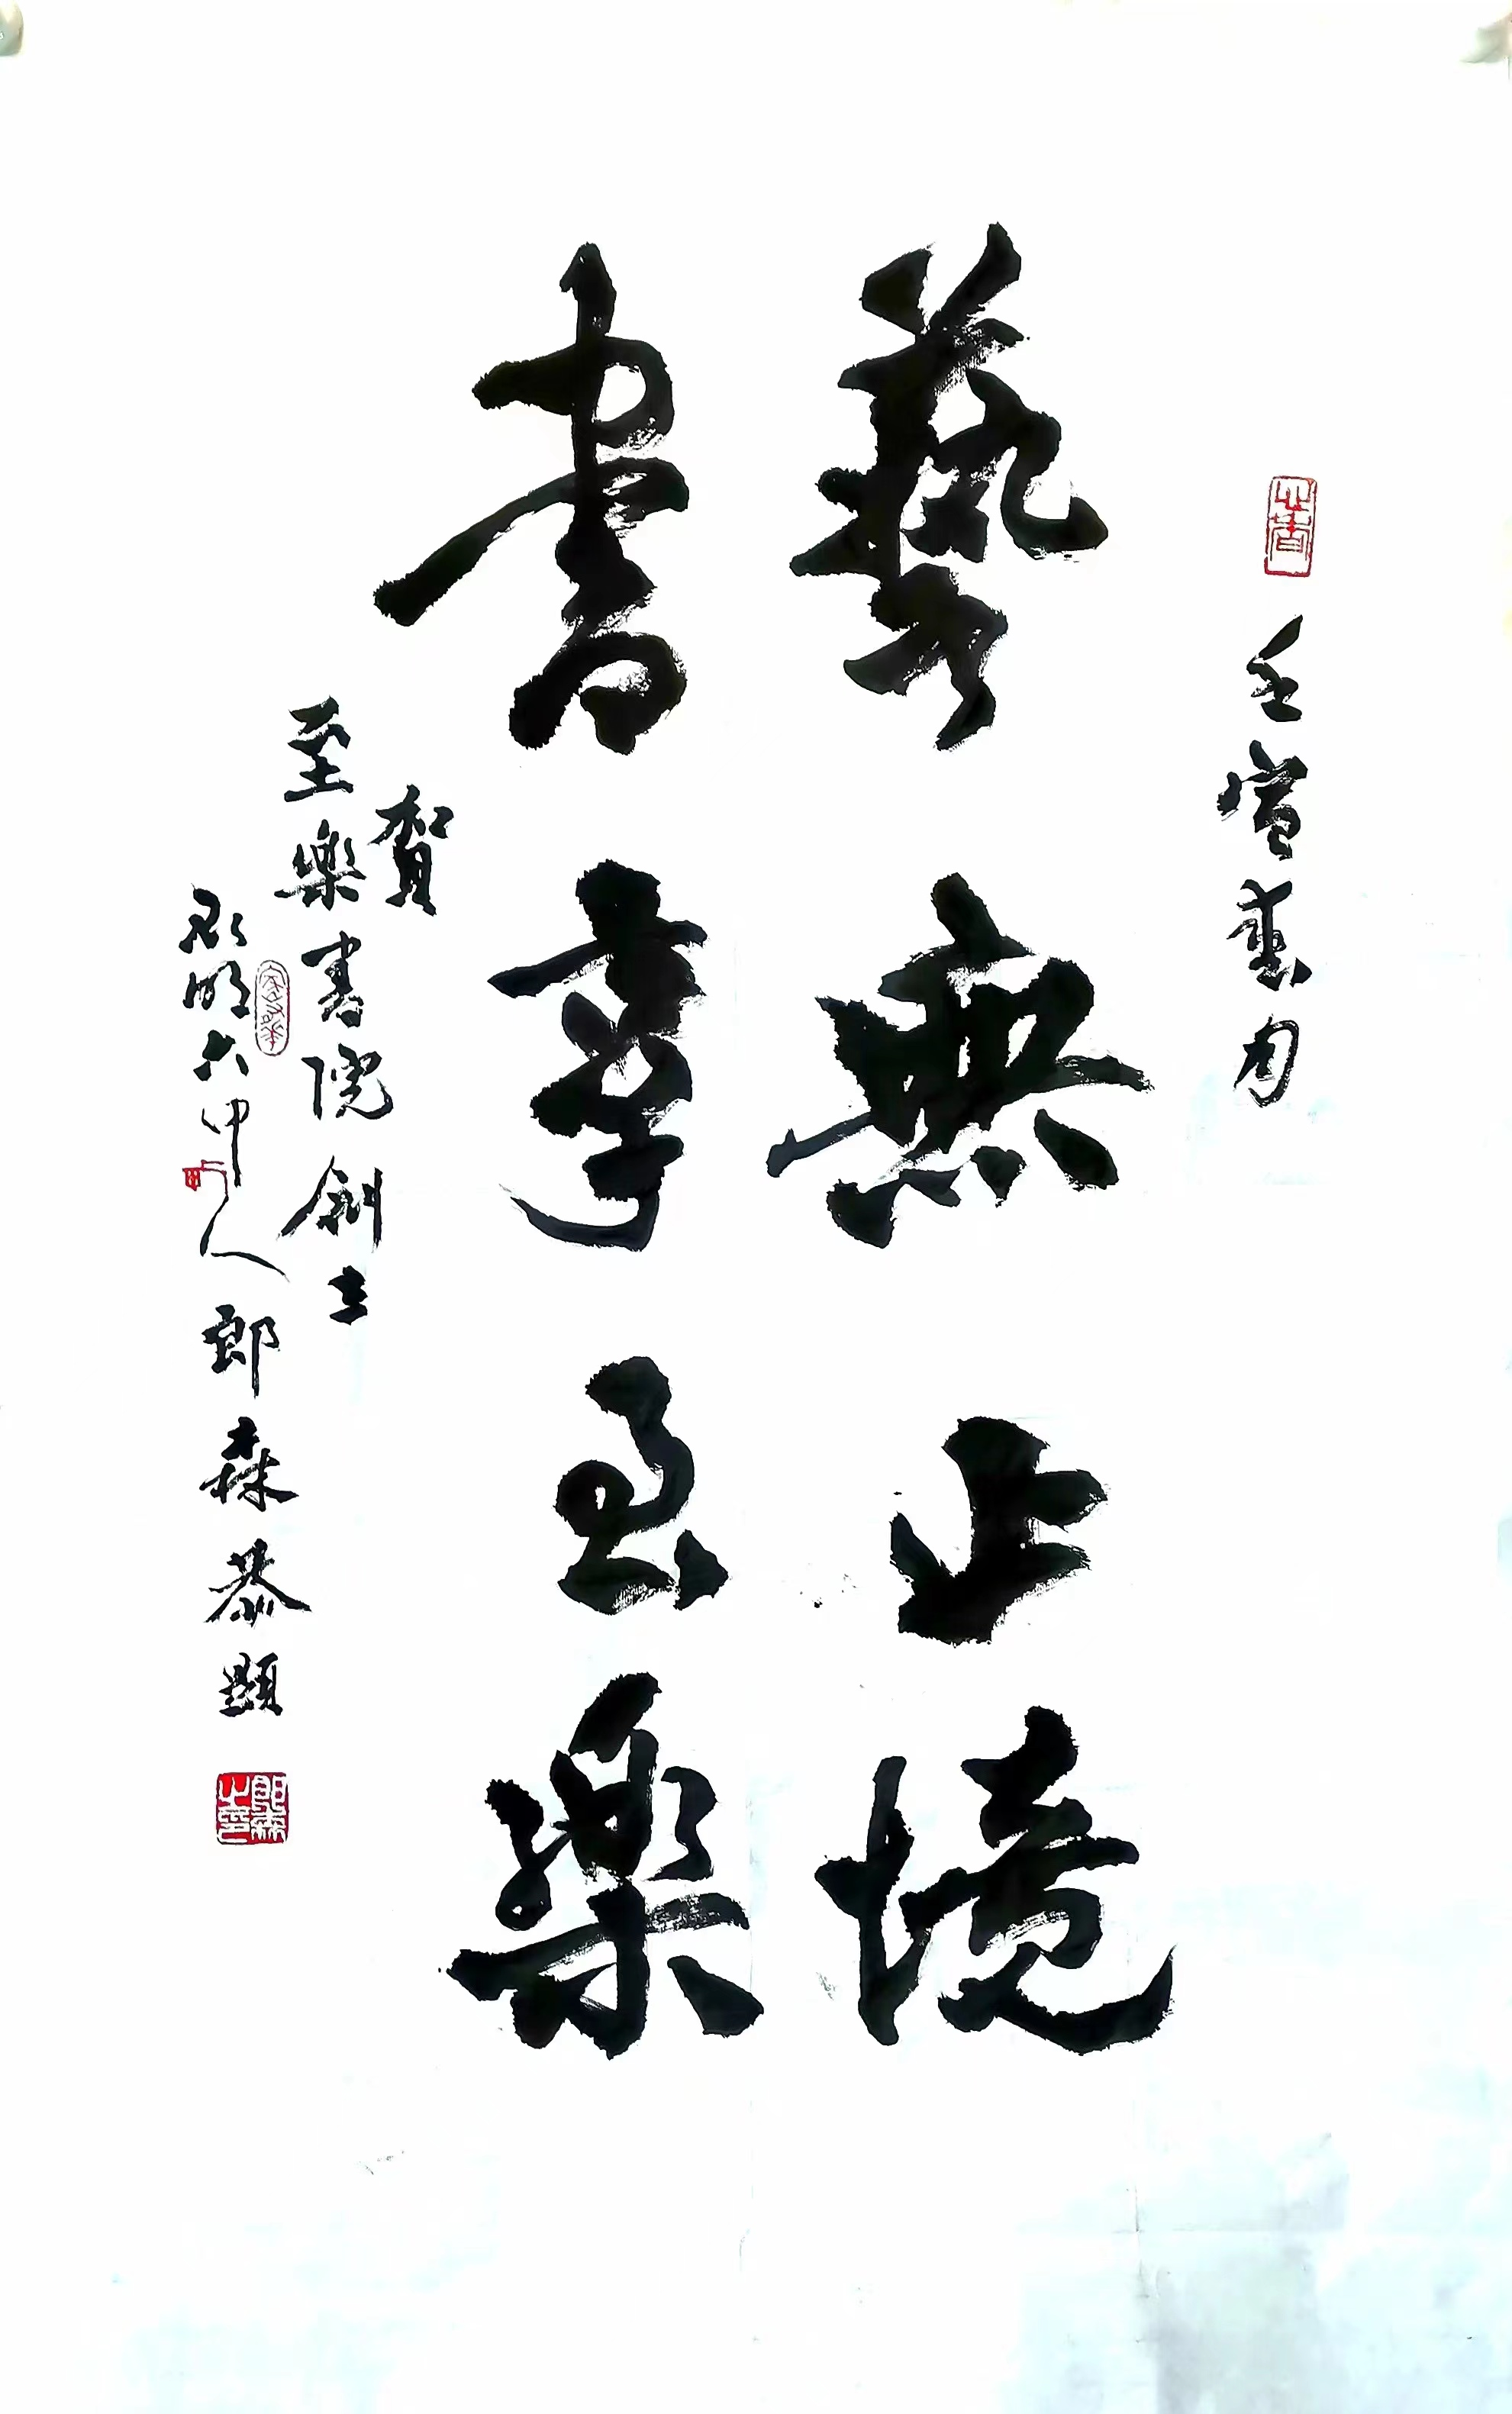 壬寅春月
藝無止境
書享至樂
賀
至樂書院創立
六甲人郎森恭題
郎森之印